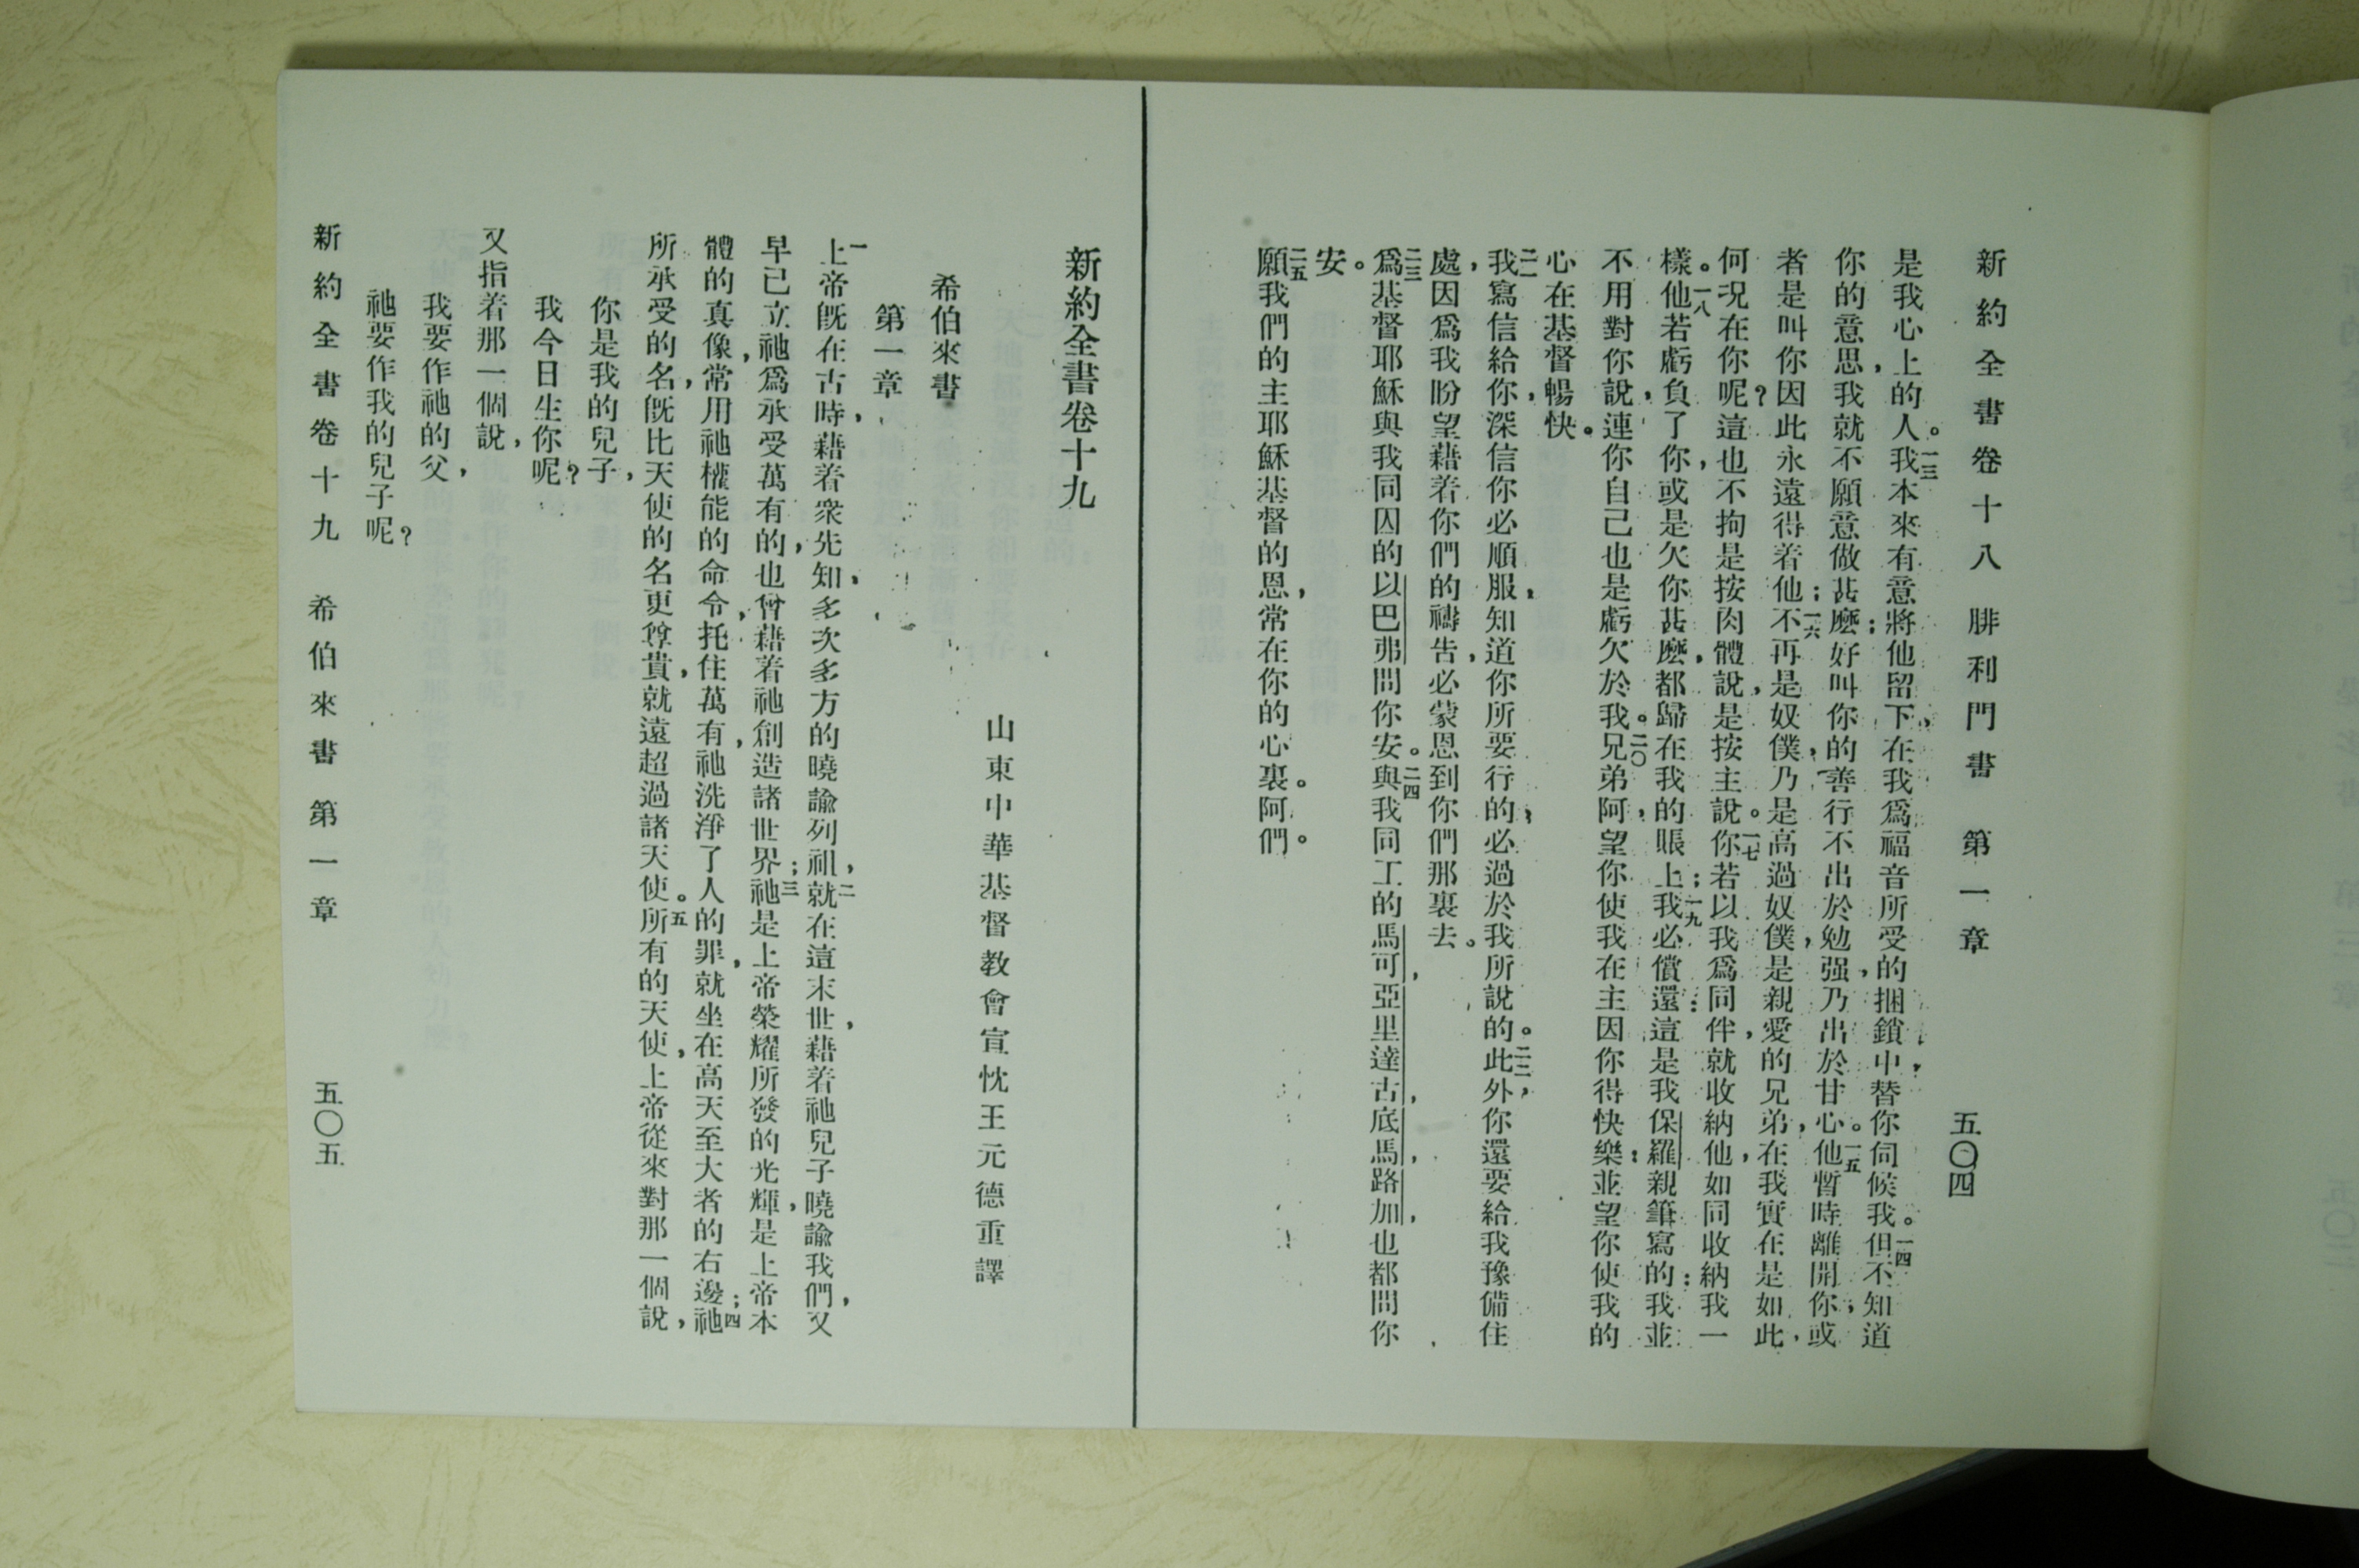 新約全書卷十八 腓利門書 第一章 五〇四
是我心上的人。一三我本來有意將他留下,在我爲福音所受的捆鎖中,替你伺候我。一四但不知道
你的意思,我就不願意做甚麽;好叫你的善行不出於勉强,乃出於甘心。一五他暫時離開你,或
者是叫你因此永遠得着他;一六不再是奴僕,乃是高過奴僕,是親愛的兄弟,在我實在是如此,
何况在你呢?這也不拘是按肉體說,是按主說。一七你若以我爲同伴,就收納他,如同收納我一
樣。一八他若虧負了你,或是欠你甚麽,都歸在我的賬上;一九我必償還:這是我保羅親筆寫的:我並
不用對你說,連你自己也是虧欠於我。二〇兄弟阿,望你使我在主因你得快樂:並望你使我的
心在基督暢快。
二一我寫信給你,深信你必順服,知道你所要行的,必過於我所說的。二二此外,你還要給我豫備住
處,因爲我盼望藉着你們的禱告,必蒙恩到你們那裏去。
二三爲基督耶穌與我同囚的以巴弗問你安。二四與我同工的馬可,亞里達古,底馬,路加,也都問你
安。
二五願我們的主耶穌基督的恩,常在你的心裏。阿們。
新約全書卷十九
山東中華基督教會宣忱王元德重譯
希伯來書
第一章
一上帝旣在古時,藉着衆先知,多次多方的曉諭列祖,二就在這末世,藉着祂兒子曉諭我們,又
早已立祂爲承受萬有的,也曾藉着祂創造諸世界;三祂是上帝榮耀所發的光輝,是上帝本
體的真像,常用祂權能的命令,托住萬有,祂洗淨了人的罪,就坐在高天至大者的右邊;四祂
所承受的名,旣比天使的名更尊貴,就遠超過諸天使。五所有的天使,上帝從來對那一個說,
你是我的兒子,
我今日生你呢?
又指着那一個說,
我要作祂的父,
祂要作我的兒子呢?
新約全書卷十九 希伯來書 第一章 五〇五